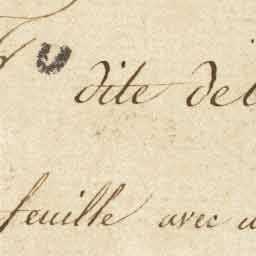 dite de
feuille avec